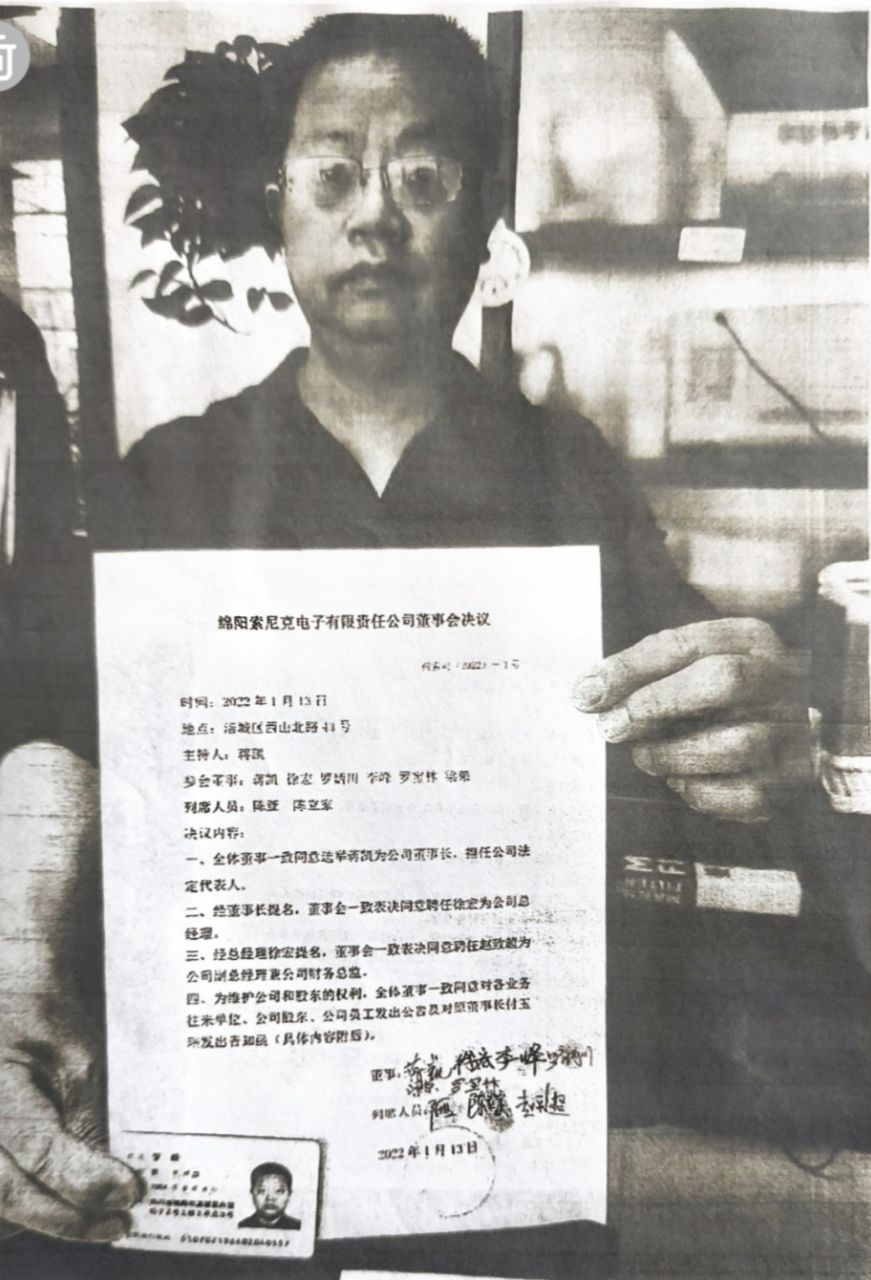 绵阳索尼克电子有限责任公司董事会决议
时间：2022年1月13日
地点：涪城区西山北路44号
主持人：蒋凯
参会董事：蒋凯 徐宏 李峰
列席人员：陈亚 陈立家
决议内容：
一、全体董事一致同意选举蒋凯为公司董事长，担任公司法
定代表人。
二、经董事长提名，董事会一致表决同意聘任徐宏为公司总
经理。
三、经总经理徐宏提名，董事会一致表决同意聘任赵致超为
公司副总经理兼公司财务总监。
四、为维护公司和股东的权利，全体董事一致同意对各业务
往来单位、公司股东、公司员工发出公告及对原董事长付玉
发出告知函（具体内容附后）。
董事：蒋凯 徐宏 李峰
列席人员：
2022年1月13日